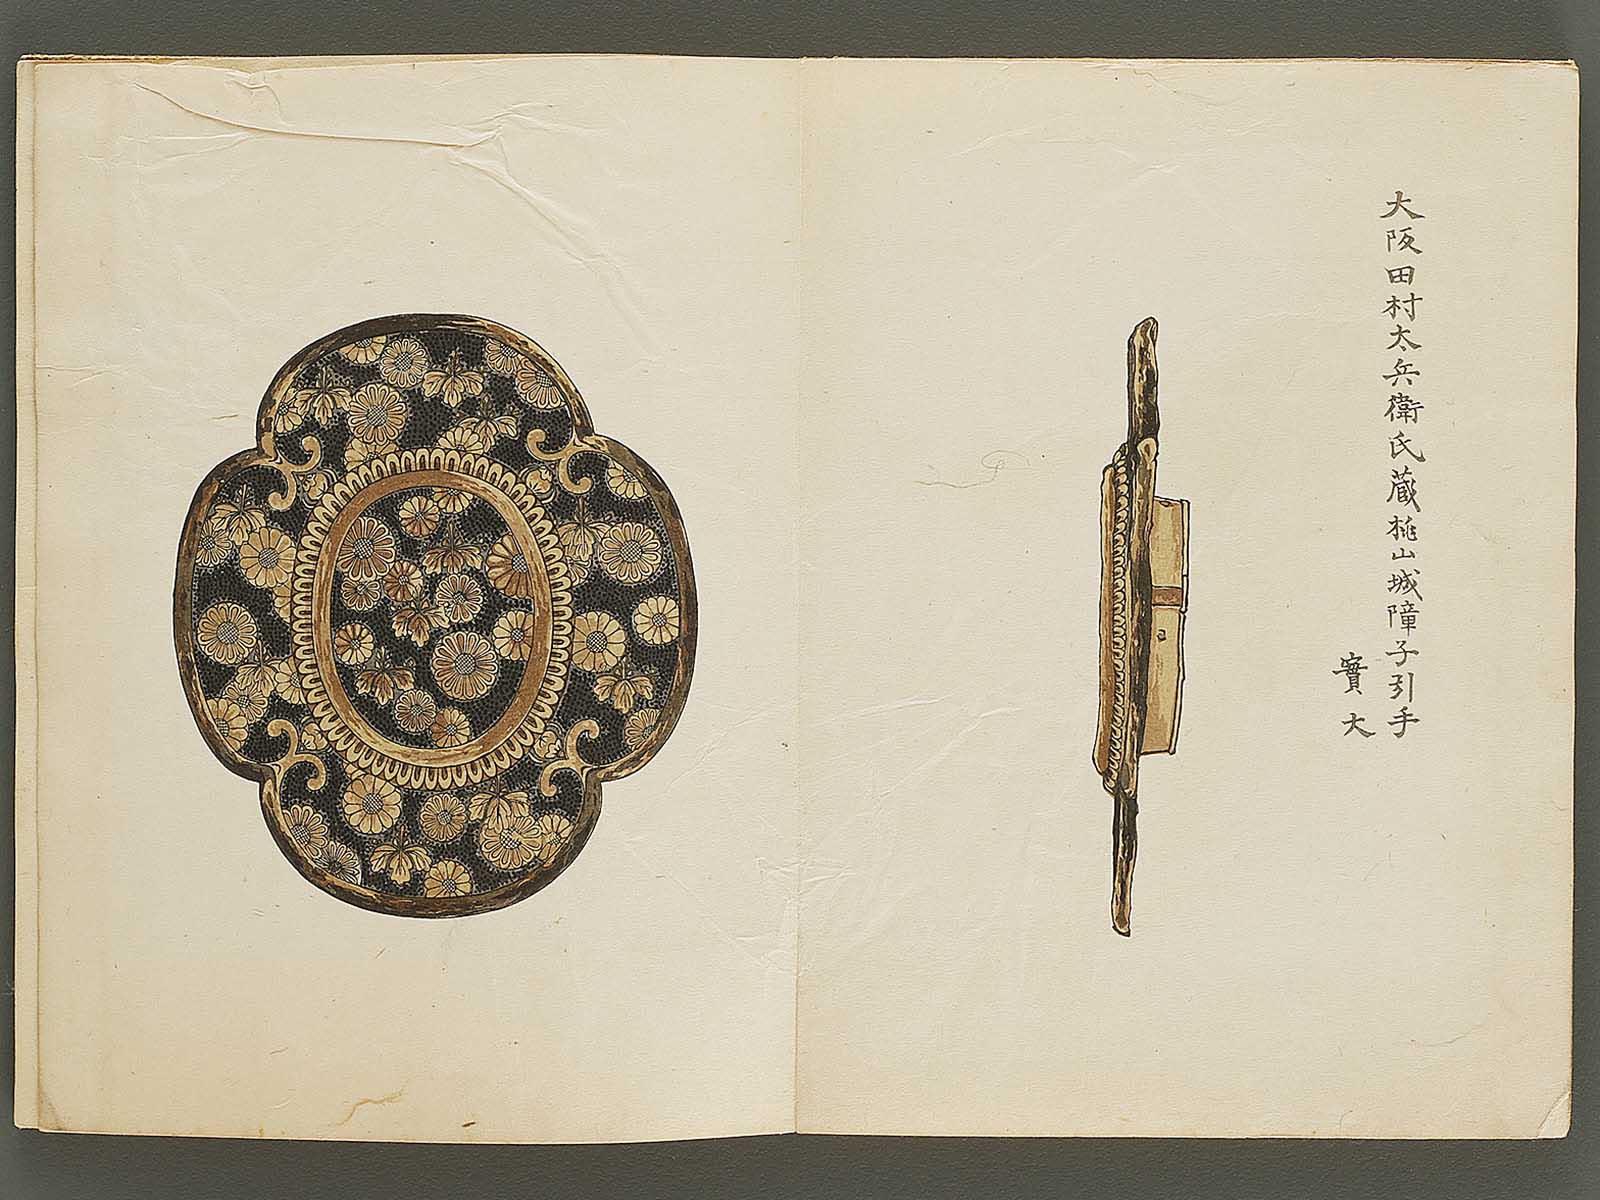 大阪田村太兵衛氏蔵桃山城障子引手
實大